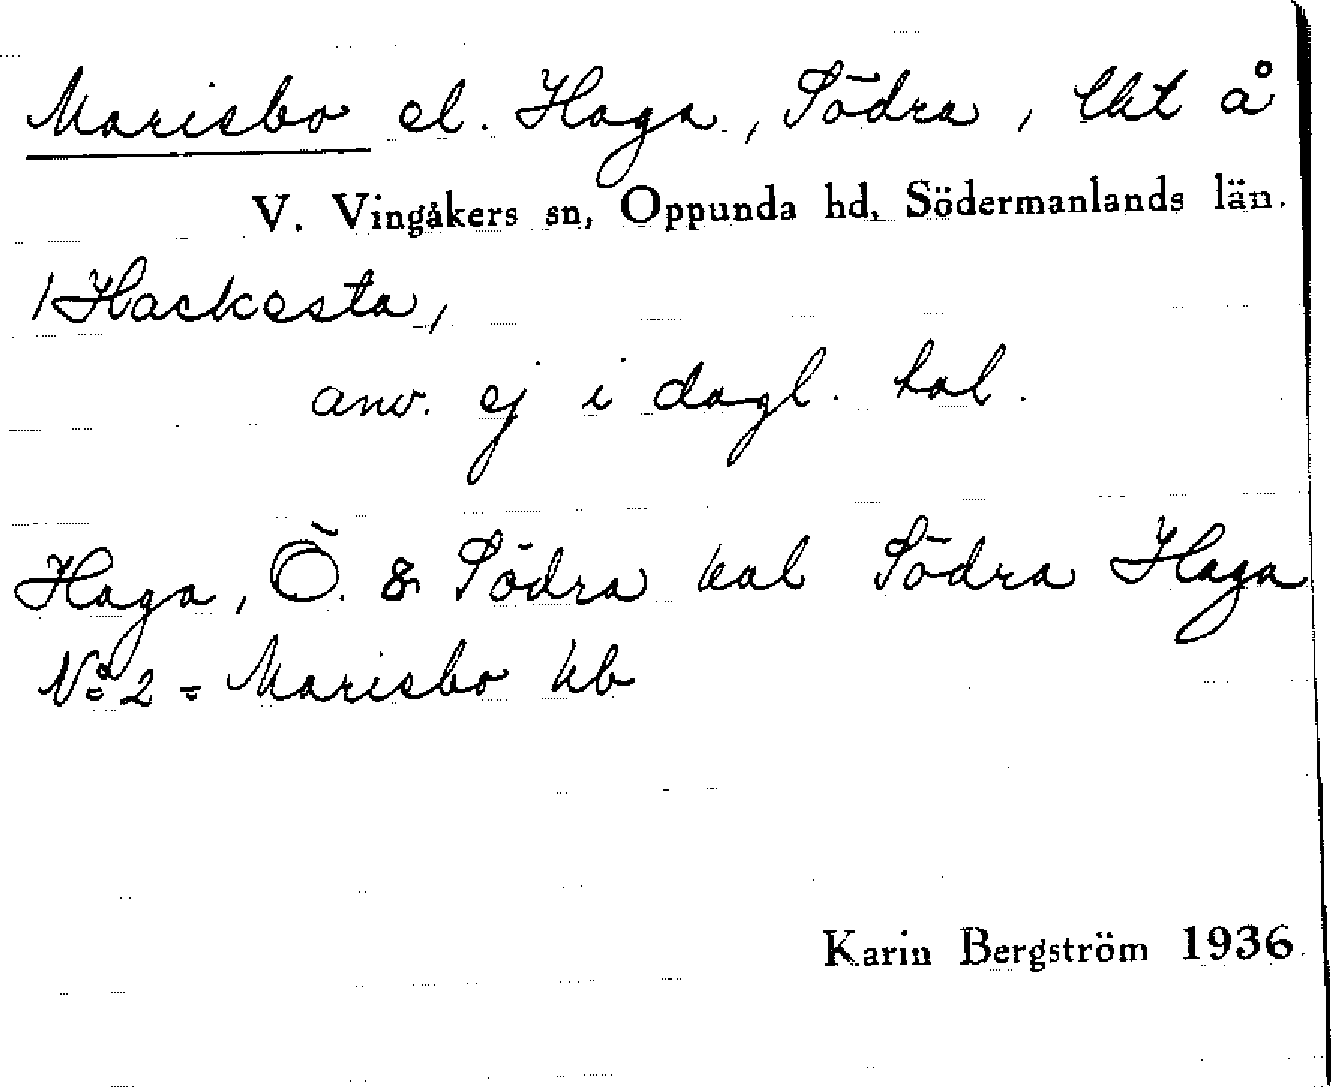 Marisbo el. Haga, Södra, lht å
V. Vingåkers sn, Oppunda hd, Södermanlands län.
/Hackesta,
anv. ej i dagl. tal.
Haga, Ö. & Södra kal Södra Haga
No 2 = Marisbo kb
Karin Bergström 1936